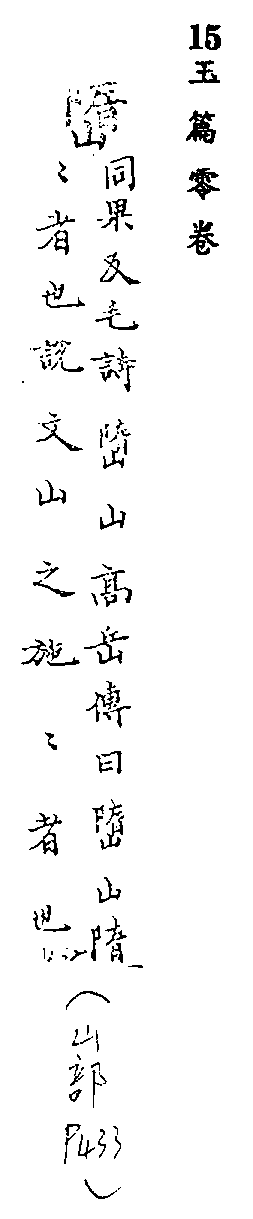 15玉篇零卷
嶞
同果反毛詩嶞山喬岳傳曰嶞山隋
〻者也說文山之施〻者也
(山部P433)